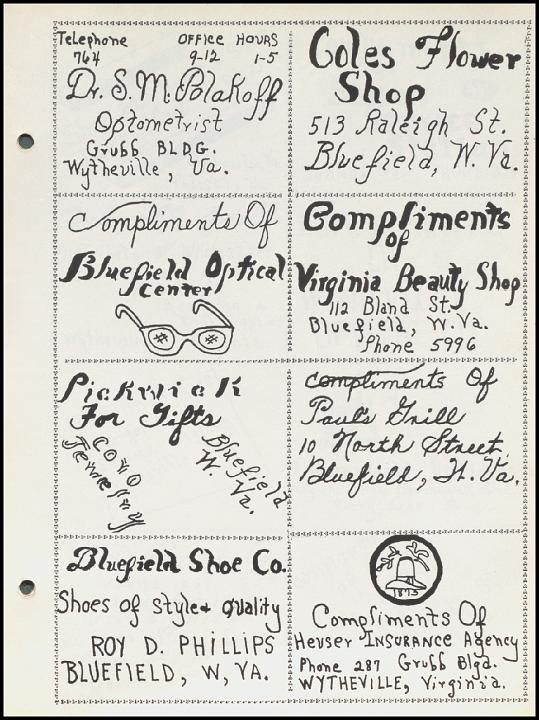 Telephone OFFICE HOURS
764 9-12 1-5
Dr. S. M. Polakoff
Optometrist
Grubb BLDG.
Wytheville, Va.
Coles Flower
Shop
513 Raleigh St.
Bluefield, W. Va.
Compliments Of
Bluefield Optical
Center
Compliments
of
Virginia Beauty Shop
112 Bland St.
Bluefield, W. Va.
Phone 5996
Pickwick
For Gifts
Coro
Jewelry
Bluefield
W. Va.
Compliments Of
Paul's Grill
10 North Street
Bluefield, W. Va.
Bluefield Shoe Co.
Shoes of Style & Quality
ROY D. PHILLIPS
BLUEFIELD, W, VA.
1873
Compliments Of
Heuser INSURANCE Agency
Phone 287 Grubb Bldg.
WYTHEVILLE, Virginia.